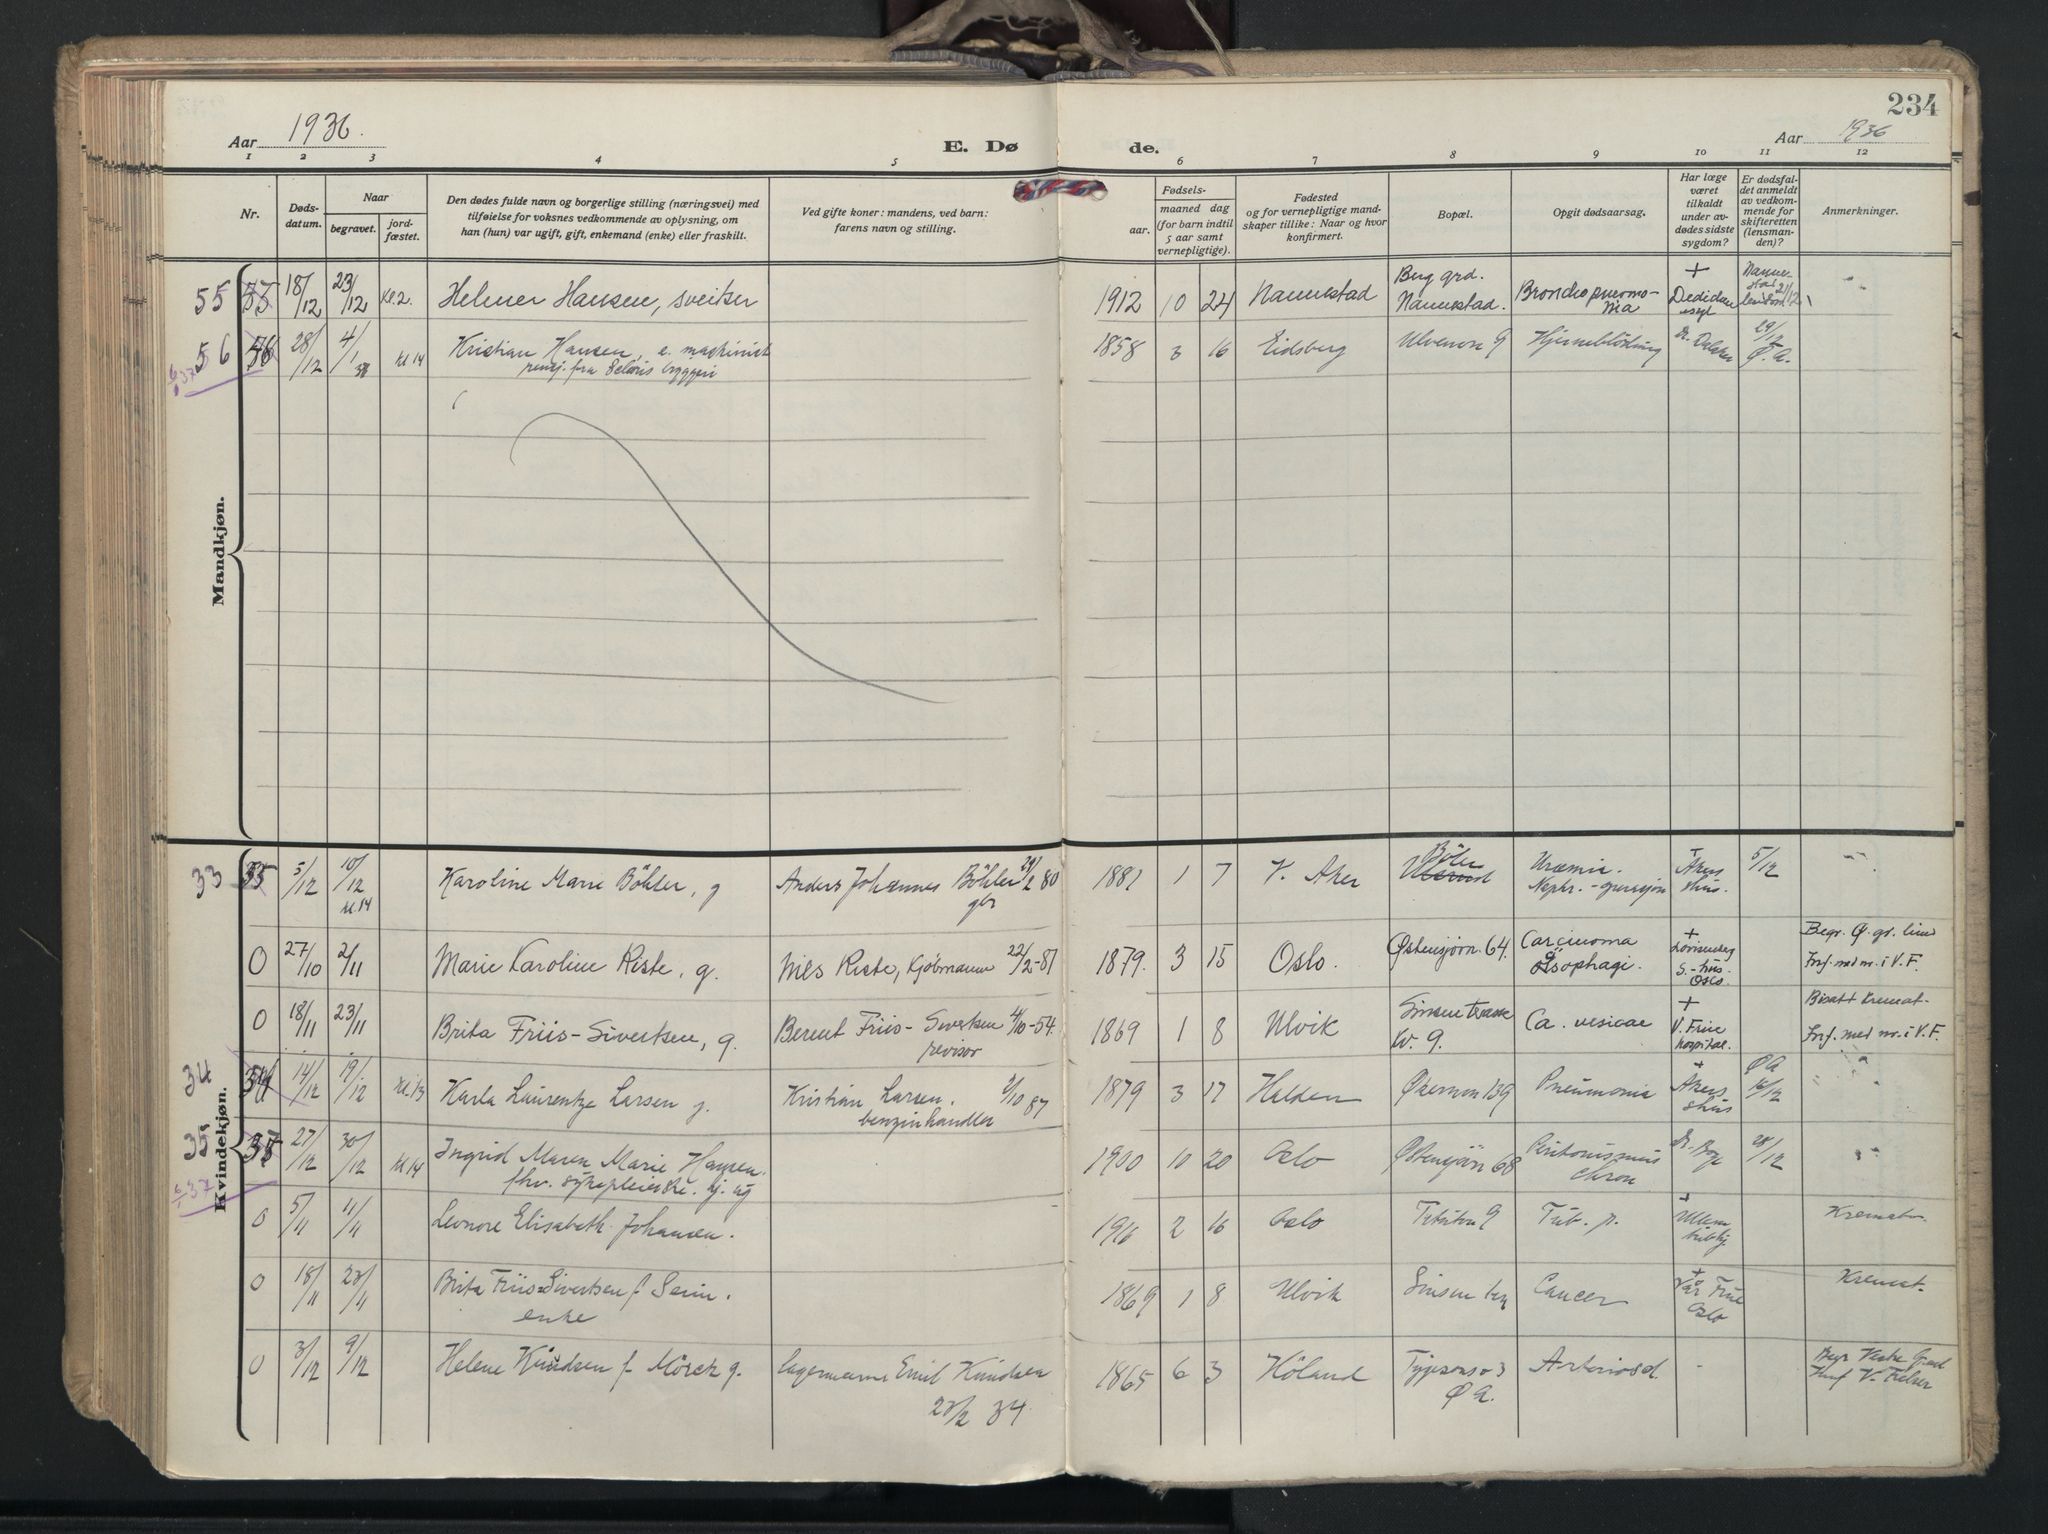 234
Aar 1936.
E. Dø
de.
Aar 1936
1 2 3 4 5 6 7 8 9 10 11 12
Nr.
Døds-
datum.
Naar
begravet.
jord-
fæstet.
Den dødes fulde navn og borgerlige stilling (næringsvei) med
tilføielse for voksnes vedkommende av oplysning, om
han (hun) var ugift, gift, enkemand (enke) eller fraskilt.
Ved gifte koner: mandens, ved barn:
farens navn og stilling.
Fødsels-
aar.
maaned dag
(for barn indtil
5 aar samt
vernepligtige).
Fødested
og for vernepligtige mand-
skaper tillike: Naar og hvor
konfirmert.
Bopæl.
Opgit dødsaarsag.
Har læge
været
tilkaldt
under av-
dødes sidste
sygdom?
Er dødsfal-
det anmeldt
av vedkom-
mende for
skifteretten
(lensman-
den)?
Anmerkninger.
Mandkjøn.
55 18/12 23/12 Kl. 2. Helmer Hansen, sveitser 1912 10 24 Nannestad Berg grd.
Nannestad. Bronchopneumo-
nia +
56 28/12 4/1 37 kl 14 Kristian Hansen, e. maskinist
pensj. fra 1858 3 16 Eidsberg Ulvenvn 9 Hjerneblödning Dr. 29/12
Ø. A.
6/1 37
Kvindekjøn.
33 5/12 10/12 kl. 14 Karoline Marie Böhler, g Anders Johannes Böhler 29/2 80
gbr 1881 1 7 V. Aker Böler Uræmi.
+ Akers
hus. 5/12
0 27/10 2/11 Marie Karoline Riste, g. Nils Riste, Kjöbmann 22/2-81 1879. 3 15 Oslo. Østensjøvn. 64. Carcinoma
oesophagi. +
Lovisenberg
S.-hus
Oslo. Begr. Ø. gr. lund
Forf. med nr. i V. F.
0 18/11 23/11 Brita Friis-Sivertsen, g. Berent Friis-Sivertsen 4/10-54.
revisor 1869 1 8 Ulvik Sinsen terrasse
kv. 9. Ca. vesicae +
V. Frue
hospital. Bisatt Kremat.
Forf. med nr. i V. F.
34 14/12 19/12 kl. 13 Karla Laurentze Larsen g. Kristian Larsen.
benzinhandler 87 1879 3 17 Halden Økernvn 139 Pneumonia + Akers
hus Ø A
16/12
35 27/12 30/12 kl 14 Ingrid Maren Marie Hansen.
fhv. sykepleierske. 1900 10 20 Oslo Östensjövn 68 Peritonismus
chron Dr. 28/12
6/1 37
0 5/4 11/4 Leonore Elisabeth Johansen. 1916 2 16 Oslo Tub. p. + Kremat.
0 18/11 23/11 Brita Friis-Sivertsen f.
enke 1869 1 8 Ulvik Sinsen ter Cancer +
Vår Frue
Oslo Kremat.
0 3/12 9/12 Helene Knudsen f. Mörck g. lagermann Emil Knudsen
34 1865 6 3 Höland
Ø A. -